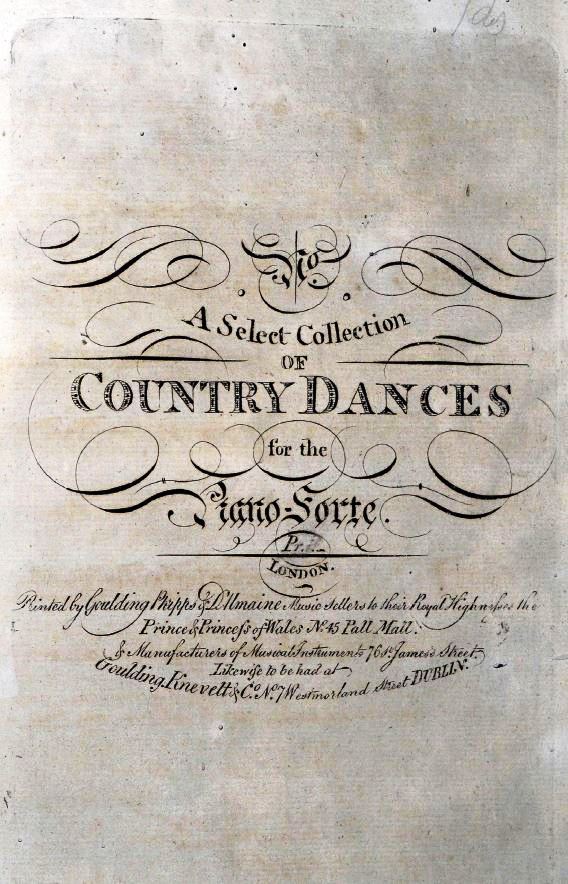 No
A Select Collection
OF
COUNTRY DANCES
for the
Piano-Forte.
Pr.
LONDON.
Printed by Goulding Phipps & D'Almaine Music Sellers to their Royal Highnesses the
Prince & Princess of Wales No. 45 Pall Mall.
& Manufacturers of Musical Instruments 76 St. James's Street.
Likewise to be had at
Goulding, Knevett & Co. No. 7 Westmorland Street DUBLIN.